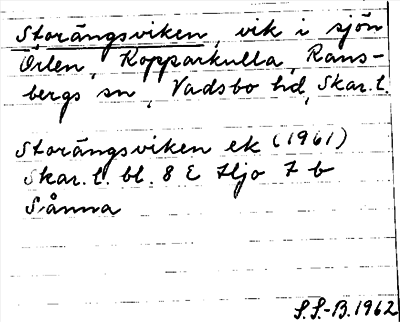 Storängsviken, vik i sjön
Örlen, Kopparkulla, Rans-
bergs sn, Vadsbo hd, Skar. l.
Storängsviken ek (1961)
Skar. l. bl. 8 E Hjo 7 b
Sånna
S.S.-B. 1962